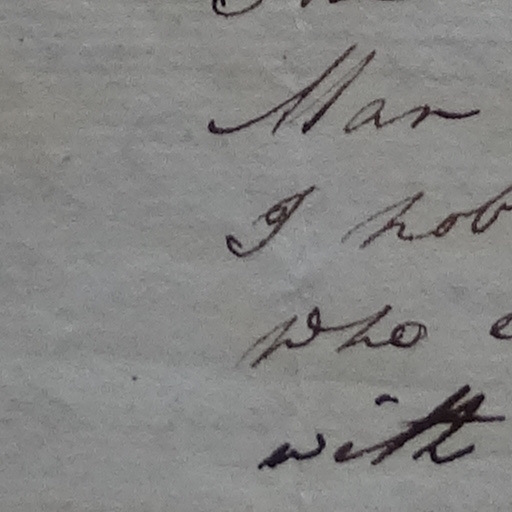 Man
I hob
who
with